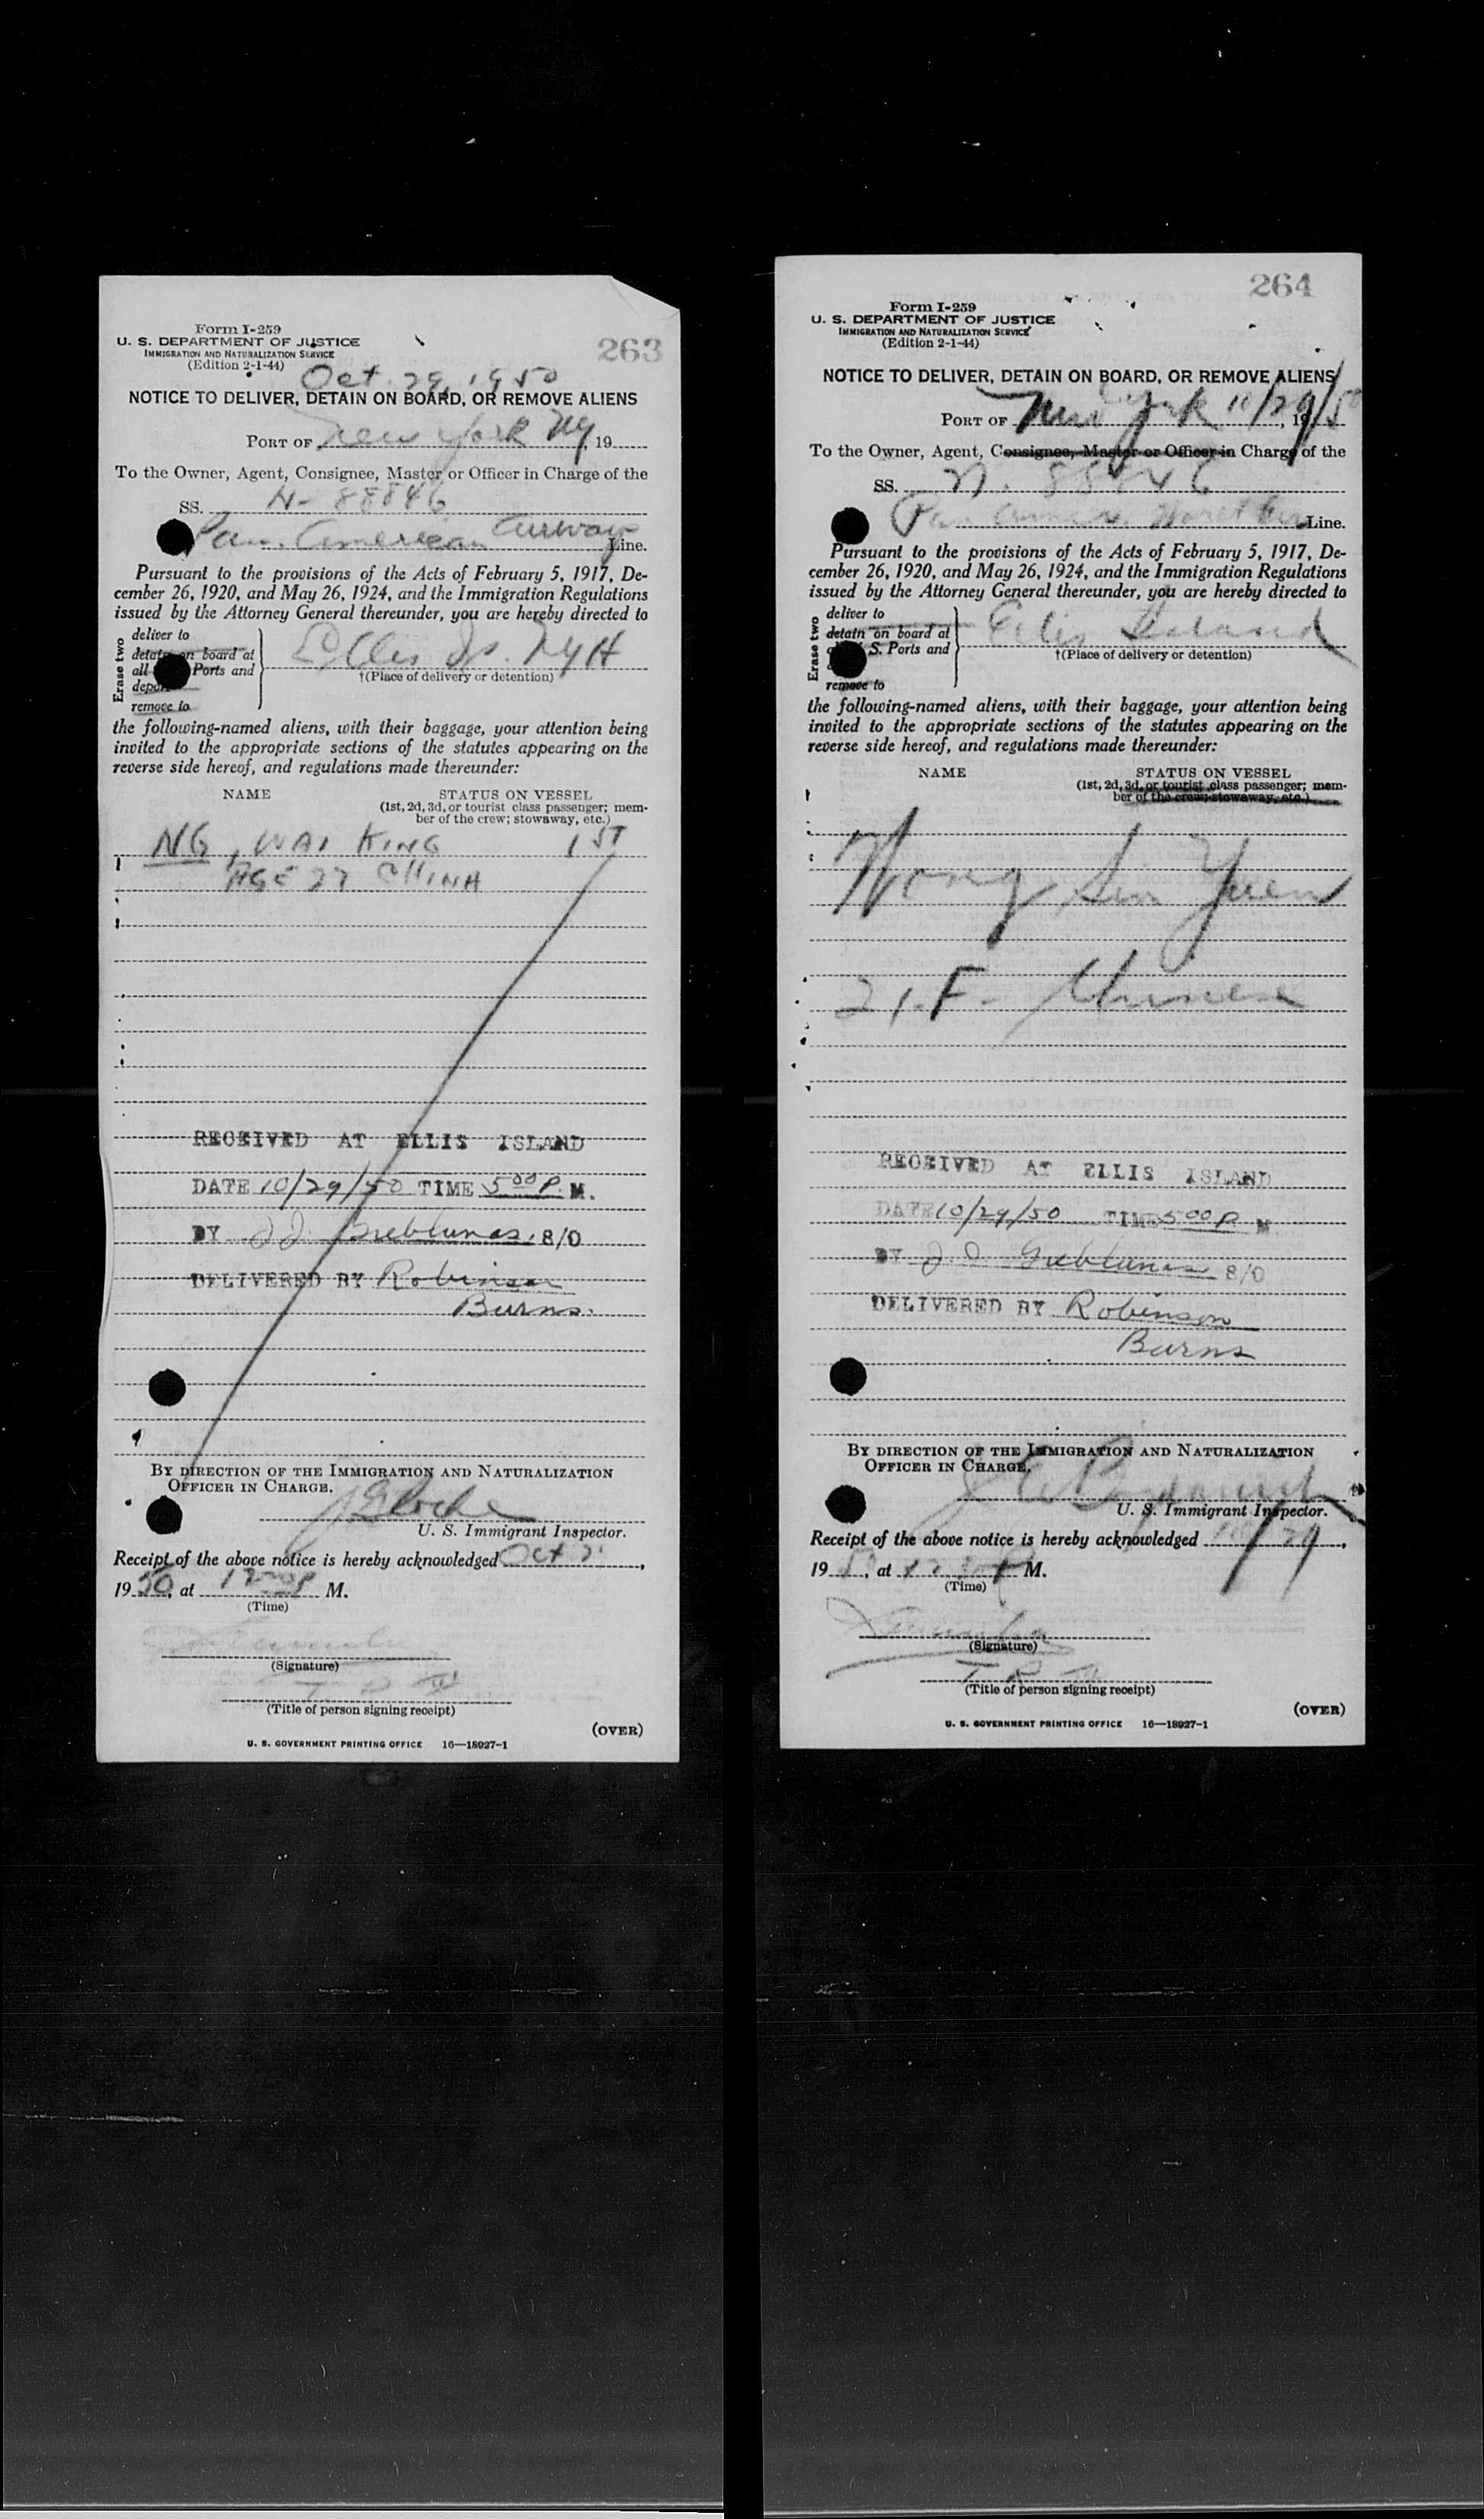 263
Form I-259
U. S. DEPARTMENT OF JUSTICE
IMMIGRATION AND NATURALIZATION SERVICE
(Edition 2-1-44)
Oct. 29, 1950
NOTICE TO DELIVER, DETAIN ON BOARD, OR REMOVE ALIENS
PORT OF New York NY, 19
To the Owner, Agent, Consignee, Master or Officer in Charge of the
SS. N- 88846
Pan. American Airways Line.
Pursuant to the provisions of the Acts of February 5, 1917, De-
cember 26, 1920, and May 26, 1924, and the Immigration Regulations
issued by the Attorney General thereunder, you are hereby directed to
Erase two
deliver to
detain on board at
all Ports and
depor
remove to
Ellis Is. NYH
†(Place of delivery or detention)
the following-named aliens, with their baggage, your attention being
invited to the appropriate sections of the statutes appearing on the
reverse side hereof, and regulations made thereunder:
NAME STATUS ON VESSEL
(1st, 2d, 3d, or tourist class passenger; mem-
ber of the crew; stowaway, etc.)
NG, WAI KING 1ST
AGE 27 CHINA
RECEIVED AT ELLIS ISLAND
DATE 10/29/50 TIME 5 00 P. M.
BY J J 8/0
DELIVERED BY Robinson
Burns.
BY DIRECTION OF THE IMMIGRATION AND NATURALIZATION
OFFICER IN CHARGE.
U. S. Immigrant Inspector.
Receipt of the above notice is hereby acknowledged Oct 2 ,
19 50, at M.
(Time)
(Signature)
(Title of person signing receipt)
(OVER)
U. S. GOVERNMENT PRINTING OFFICE 16—18927-1
264
Form I-259
U. S. DEPARTMENT OF JUSTICE
IMMIGRATION AND NATURALIZATION SERVICE
(Edition 2-1-44)
NOTICE TO DELIVER, DETAIN ON BOARD, OR REMOVE ALIENS
PORT OF New York 11/29/50, 19
To the Owner, Agent, Consignee, Master or Officer in Charge of the
SS. N. 88846
Pan Line.
Pursuant to the provisions of the Acts of February 5, 1917, De-
cember 26, 1920, and May 26, 1924, and the Immigration Regulations
issued by the Attorney General thereunder, you are hereby directed to
Erase two
deliver to
detain on board at
S. Ports and
remove to
Ellis Island
†(Place of delivery or detention)
the following-named aliens, with their baggage, your attention being
invited to the appropriate sections of the statutes appearing on the
reverse side hereof, and regulations made thereunder:
NAME STATUS ON VESSEL
(1st, 2d, 3d, or tourist class passenger; mem-
ber of the crew; stowaway, etc.)
Wong Sun Yuen
21. F- Chinese
RECEIVED AT ELLIS ISLAND
DATE 10/29/50 TIME 5 00 P M
BY J. J. 8/0
DELIVERED BY Robinson
Burns
BY DIRECTION OF THE IMMIGRATION AND NATURALIZATION
OFFICER IN CHARGE.
U. S. Immigrant Inspector.
Receipt of the above notice is hereby acknowledged 10/29,
19 5 , at M.
(Time)
(Signature)
(Title of person signing receipt)
(OVER)
U. S. GOVERNMENT PRINTING OFFICE 16—18927-1